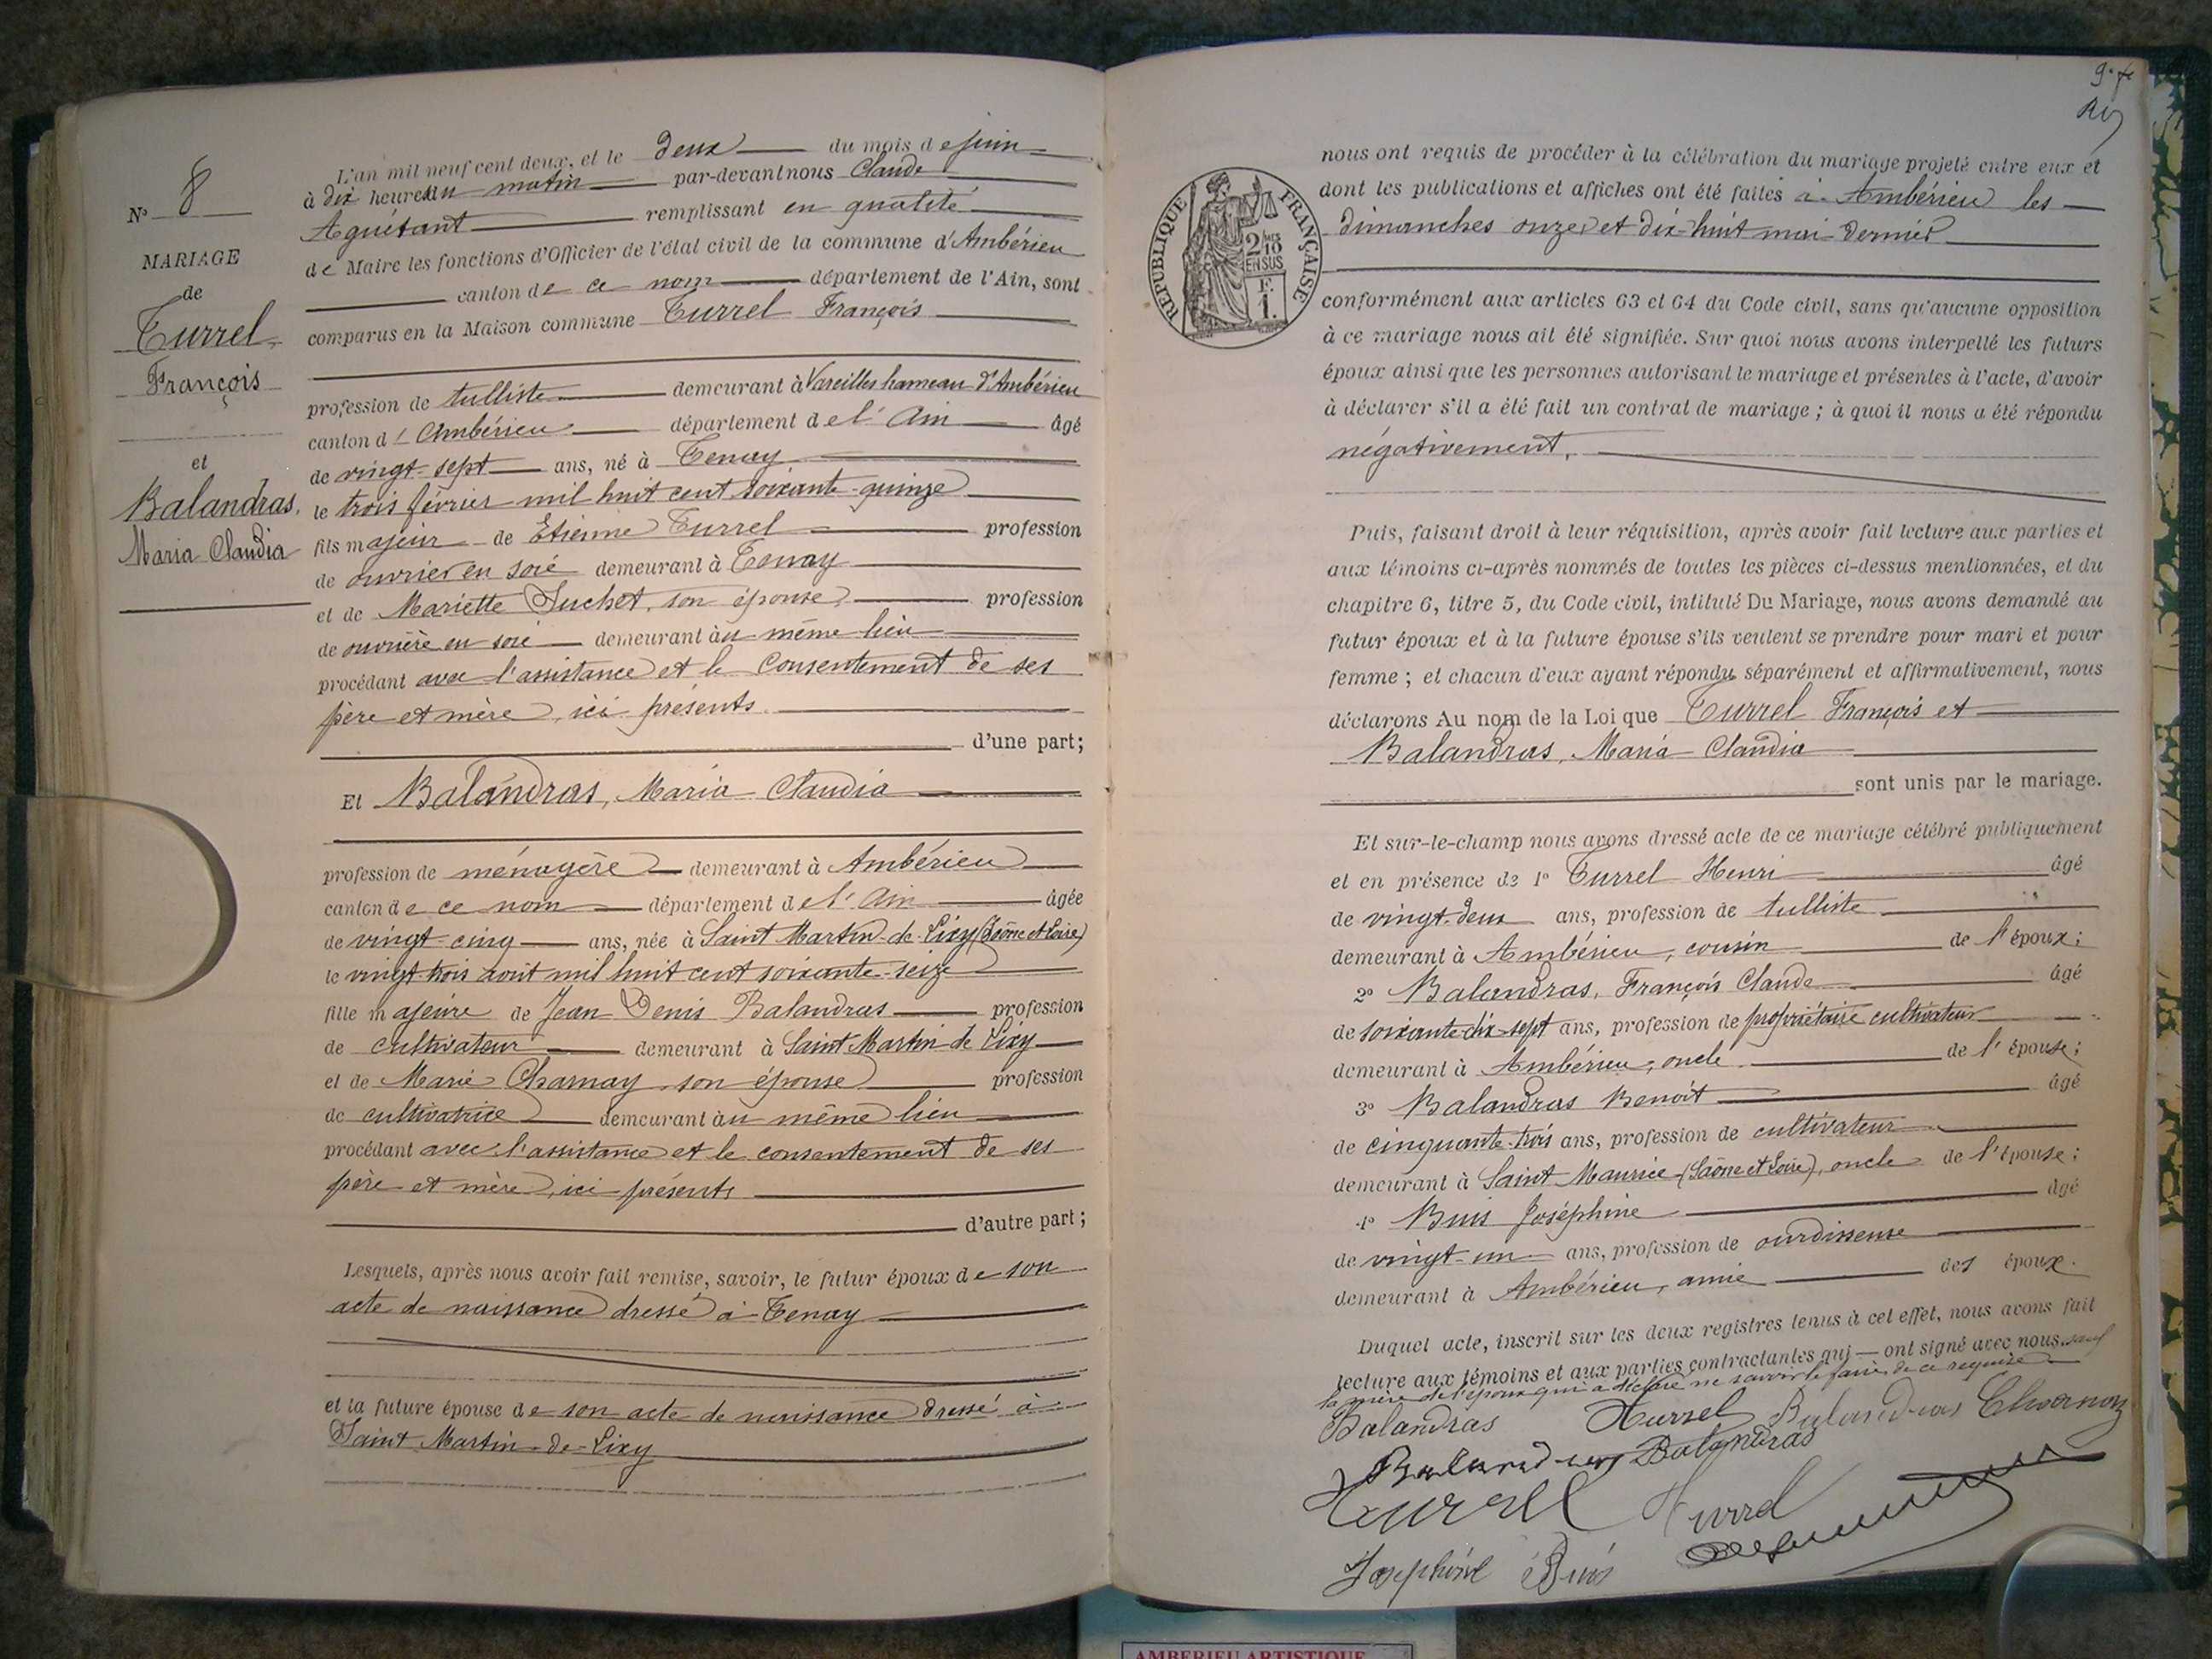 N° 8
MARIAGE
de
Turrel
François
et
Balandras,
Maria Claudia
L'an mil neuf cent deux, et le deux du mois de juin
à dix heures du matin par-devant nous Claude
Aguétant remplissant en qualité
de Maire les fonctions d'Officier de l'état civil de la commune d'Ambérieu
canton de ce nom département de l'Ain, sont
comparus en la Maison commune Turrel François
profession de tulliste demeurant à Vareilles hameau d'Ambérieu
canton d'Ambérieu département de l'Ain âgé
de vingt-sept ans, né à Tenay
le trois février mil huit cent soixante-quinze
fils majeur de Etienne Turrel profession
de ouvrier en soie demeurant à Tenay
et de Mariette Suchet, son épouse, profession
de ouvrière en soie demeurant au même lieu
procédant avec l'assistance et le consentement de ses
père et mère, ici présents
d'une part;
Et Balandras, Maria Claudia
profession de ménagère demeurant à Ambérieu
canton de ce nom département de l'Ain âgée
de vingt-cinq ans, née à Saint Martin-de-Lixy (Saône et Loire)
le vingt-trois août mil huit cent soixante-seize
fille majeure de Jean Denis Balandras profession
de cultivateur demeurant à Saint Martin de Lixy
et de Marie Charnay son épouse profession
de cultivatrice demeurant au même lieu
procédant avec l'assistance et le consentement de ses
père et mère, ici présents
d'autre part;
Lesquels, après nous avoir fait remise, savoir, le futur époux de son
acte de naissance dressé à Tenay
et la future épouse de son acte de naissance dressé à
Saint Martin-de-Lixy
RÉPUBLIQUE FRANÇAISE
2/10 MES
EN SUS
F.
1.
nous ont requis de procéder à la célébration du mariage projeté entre eux et
dont les publications et affiches ont été faites à Ambérieu les
dimanches onze et dix-huit mai dernier
conformément aux articles 63 et 64 du Code civil, sans qu'aucune opposition
à ce mariage nous ait été signifiée. Sur quoi nous avons interpellé les futurs
époux ainsi que les personnes autorisant le mariage et présentes à l'acte, d'avoir
à déclarer s'il a été fait un contrat de mariage; à quoi il nous a été répondu
négativement.
Puis, faisant droit à leur réquisition, après avoir fait lecture aux parties et
aux témoins ci-après nommés de toutes les pièces ci-dessus mentionnées, et du
chapitre 6, titre 5, du Code civil, intitulé Du Mariage, nous avons demandé au
futur époux et à la future épouse s'ils veulent se prendre pour mari et pour
femme; et chacun d'eux ayant répondu séparément et affirmativement, nous
déclarons Au nom de la Loi que Turrel François et
Balandras, Maria Claudia
sont unis par le mariage.
Et sur-le-champ nous avons dressé acte de ce mariage célébré publiquement
et en présence de 1° Turrel Henri âgé
de vingt-deux ans, profession de tulliste
demeurant à Ambérieu, cousin de l'époux;
2° Balandras, François Claude âgé
de soixante-dix-sept ans, profession de propriétaire cultivateur
demeurant à Ambérieu, oncle de l'épouse;
3° Balandras Benoît âgé
de cinquante-trois ans, profession de cultivateur
demeurant à Saint Maurice (Saône et Loire), oncle de l'épouse;
4° Buis Joséphine âgé
de vingt-un ans, profession de ourdisseuse
demeurant à Ambérieu, amie des époux.
Duquel acte, inscrit sur les deux registres tenus à cet effet, nous avons fait
lecture aux témoins et aux parties contractantes qui ont signé avec nous sauf
la mère de l'époux qui a déclaré ne savoir le faire de ce requise
Balandras Turrel Balandras Charnay
Balandras Balandras
Turrel Turrel
Joséphine Buis
AMBERIEU ARTISTIQUE